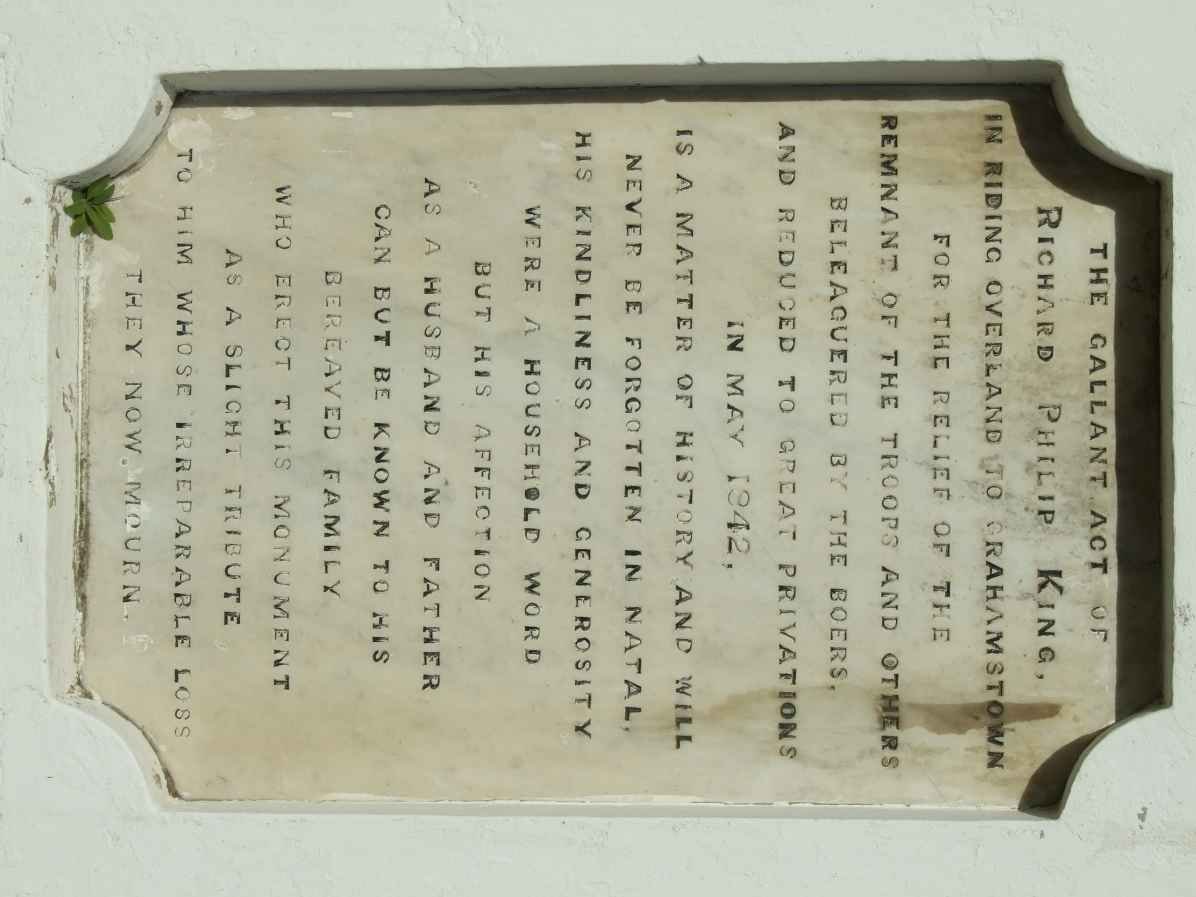 THE GALLANT ACT OF
RICHARD PHILIP KING,
IN RIDING OVERLAND TO GRAHAMSTOWN
FOR THE RELIEF OF THE
REMNANT OF THE TROOPS AND OTHERS
BELEAGUERED BY THE BOERS,
AND REDUCED TO GREAT PRIVATIONS
IN MAY 1842,
IS A MATTER OF HISTORY AND WILL
NEVER BE FORGOTTEN IN NATAL,
HIS KINDLINESS AND GENEROSITY
WERE A HOUSEHOLD WORD
BUT HIS AFFECTION
AS A HUSBAND AND FATHER
CAN BUT BE KNOWN TO HIS
BEREAVED FAMILY
WHO ERECT THIS MONUMENT
AS A SLIGHT TRIBUTE
TO HIM WHOSE IRREPARABLE LOSS
THEY NOW MOURN.